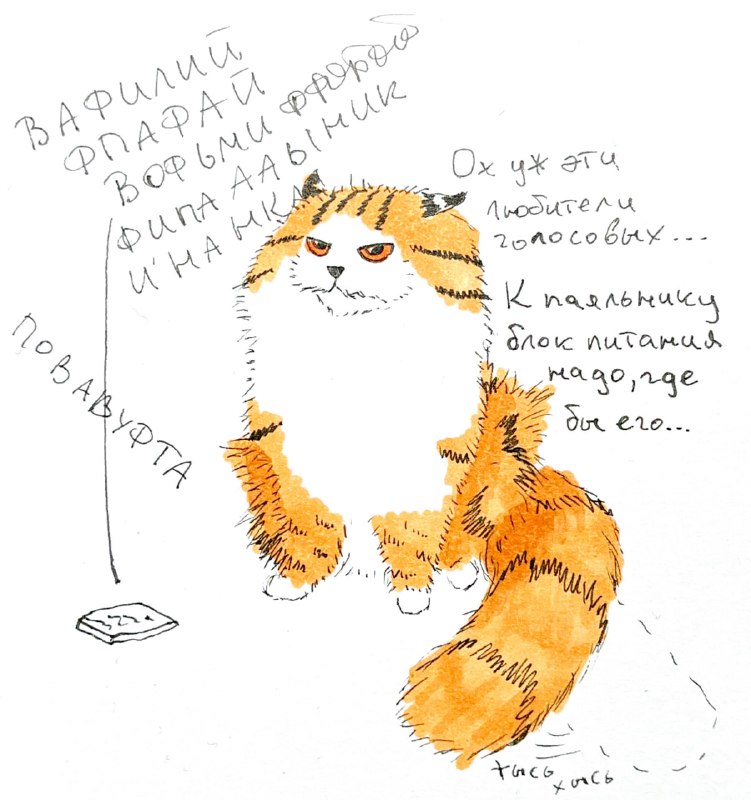 ВАФИЛИЙ
ФПАФАЙ
ВОФЬМИ ФФОБОЙ
ФИПА ААЫНИК
И НА НКА
ПОВАВУФТА
Ох уж эти
любители
голосовых...
К паяльнику
блок питания
надо, где
бы его...
хысь
хысь